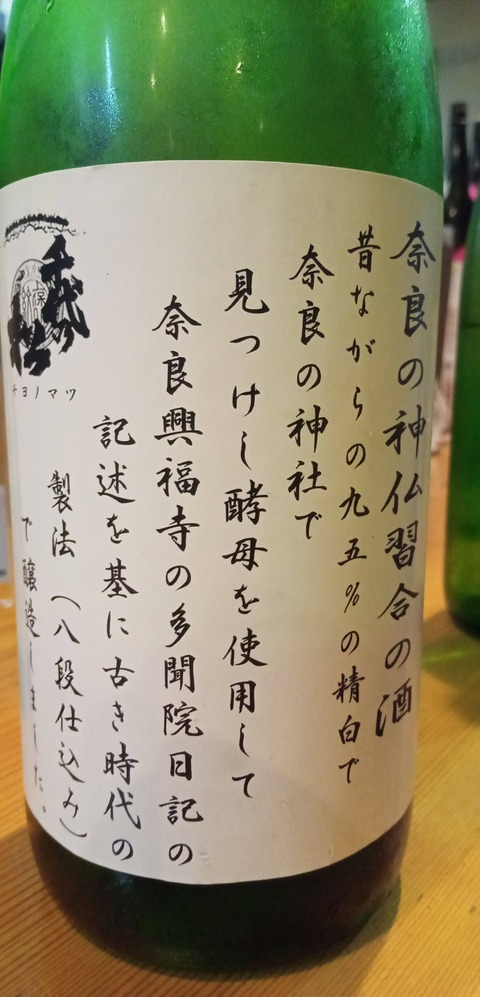 奈良の神仏習合の酒
昔ながらの九五%の精白で
奈良の神社で
見つけし酵母を使用して
奈良興福寺の多聞院日記の
記述を基に古き時代の
製法（八段仕込み）
で醸造しました。
千代の松
チヨノマツ